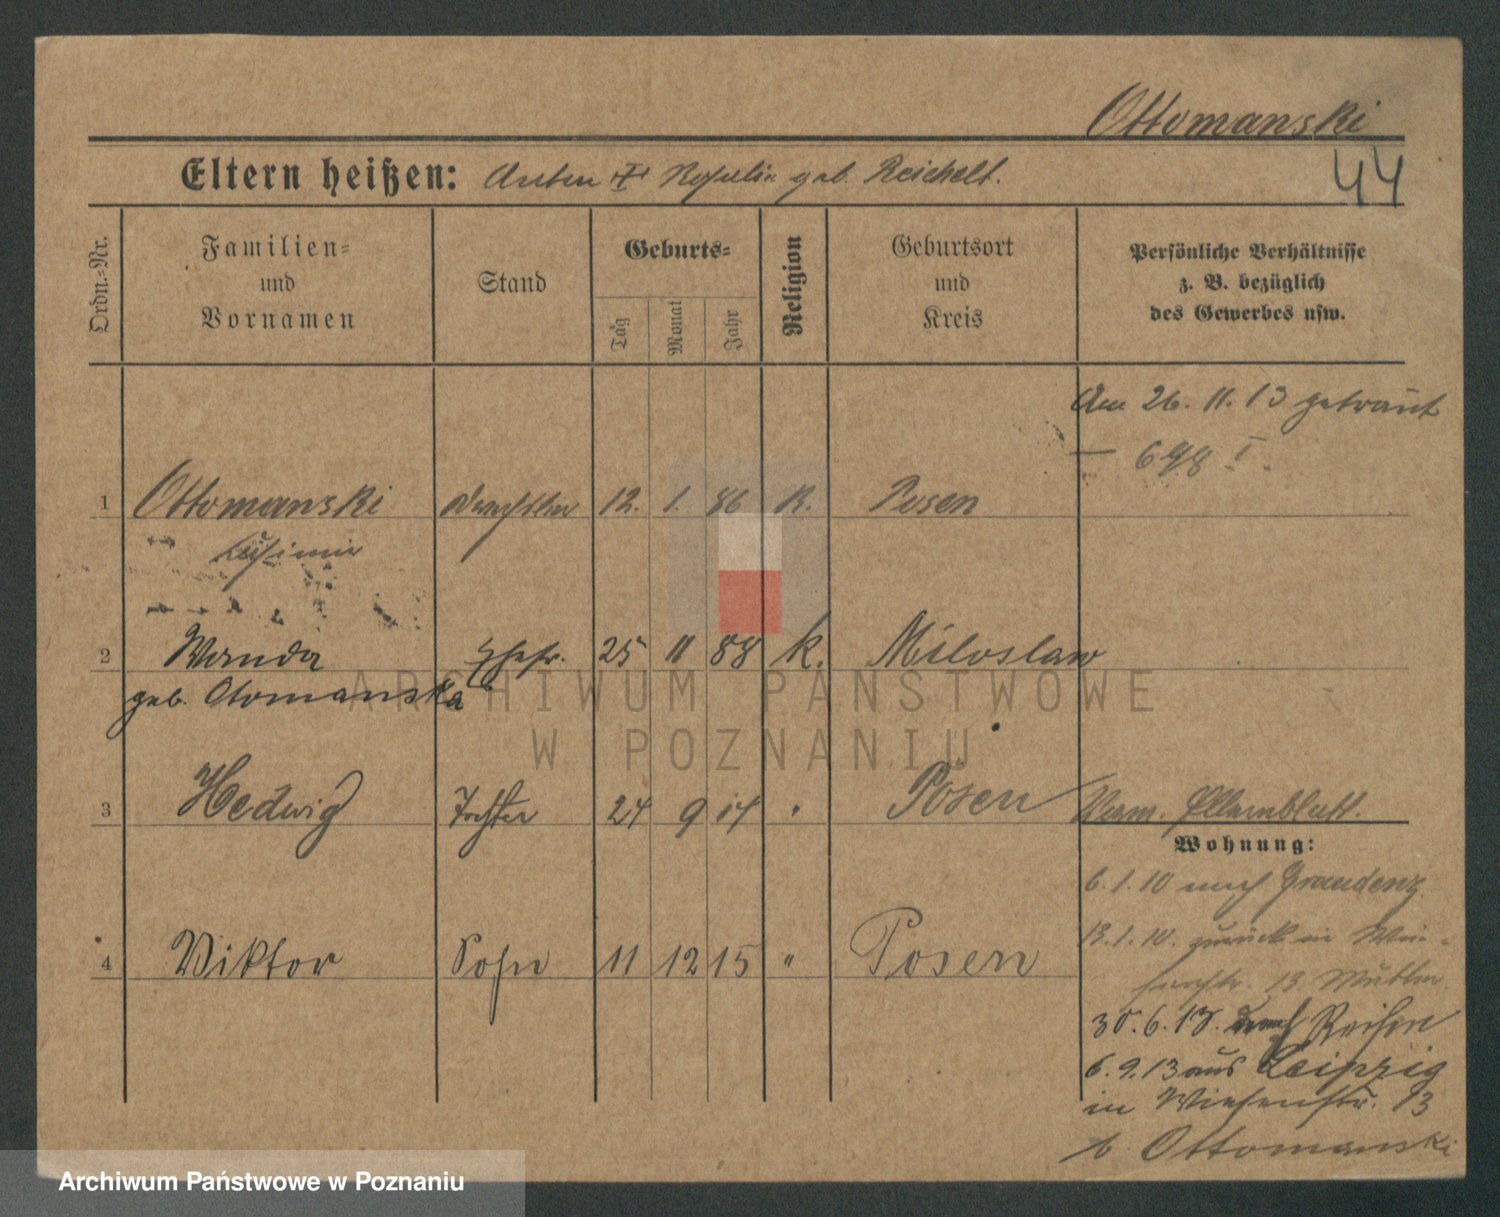 Ottomanski
44
Eltern heißen: Anton Rosalie geb. Reichelt.
Ordn.=Nr.
Familien=
und
Vornamen
Stand
Geburts=
Tag
Monat
Jahr
Religion
Geburtsort
und
Kreis
Persönliche Verhältnisse
z. B. bezüglich
des Gewerbes usw.
Am 26. 11. 13 getraut
698 I.
1 Ottomanski 12. 1. 86 K. Posen
Kasimir
2 Wanda Ehefr. 25 11 88 K. Miloslaw
geb. Otomanska
3 Hedwig Tochter 24 9 14 " Posen
Wohnung:
6.1.10 nach Graudenz
13.1.10. zurück in
13
4 Viktor Sohn 11 12 15 " Posen
30.6.13. auf Reisen
6.9.13 aus Leipzig
in Wiesenstr. 13
b. Ottomanski
ARCHIWUM PAŃSTWOWE
W POZNANIU
Archiwum Państwowe w Poznaniu